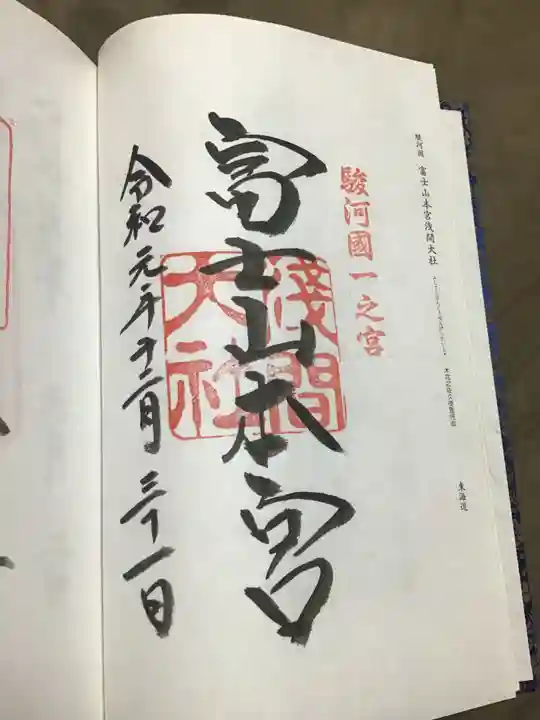 駿河国 富士山本宮浅間大社
東海道
駿河國一之宮
富士山本宮
淺間大社
令和元年十二月三十一日